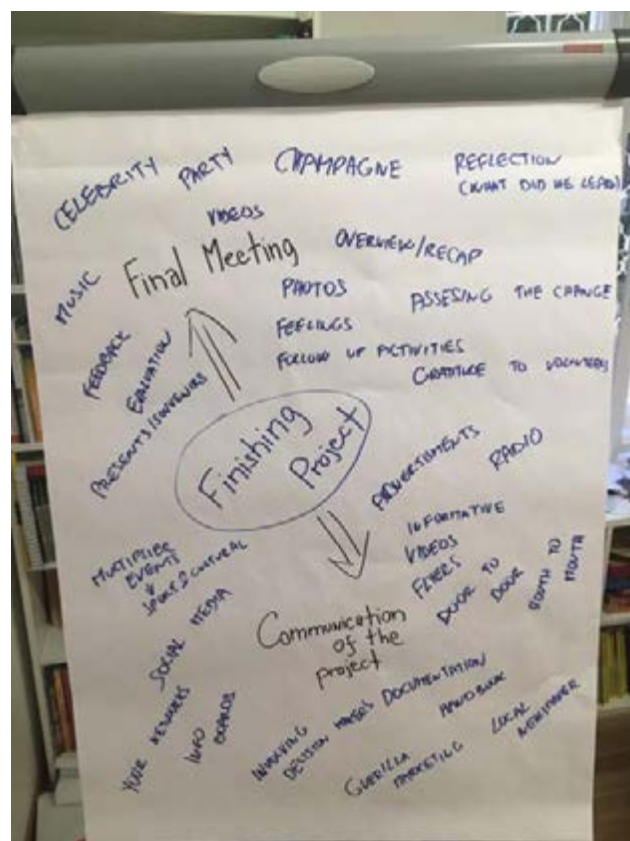 CELEBRITY
PARTY
CHAMPAGNE
REFLECTION
(WHAT DID WE LEARN)
VIDEOS
Final Meeting
OVERVIEW/RECAP
MUSIC
PHOTOS
ASSESING THE CHANGE
FEELINGS
FEEDBACK
FOLLOW UP ACTIVITIES
EVALUATION
GRATITUDE TO VOLUNTEERS
PRESENTS/SOUVENIRS
Finishing
Project
ADVERTISMENTS
RADIO
INFORMATIVE
VIDEOS
FLYERS
DOOR TO
DOOR
MOUTH TO
MOUTH
MULTIPLIER
EVENTS
SPORT & CULTURAL
SOCIAL MEDIA
Communication
of the
project
YOUR NETWORKS
INFO BOARDS
INVOLVING
DECISION MAKERS
DOCUMENTATION
HANDBOOK
GUERILLA
MARKETING
LOCAL
NEWSPAPER